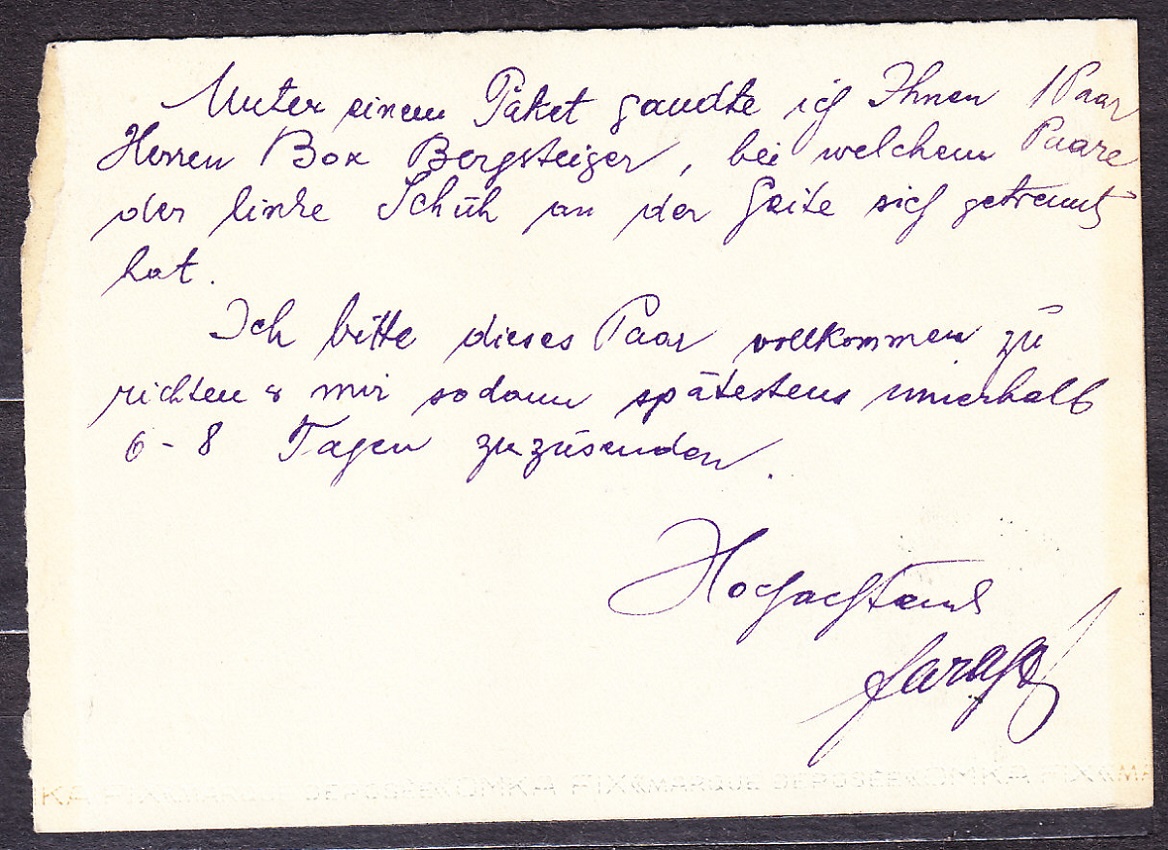 Unter einem Paket sandte ich Ihnen 1 Paar
Herren Box Bergsteiger, bei welchem Paare
der linke Schuh an der Seite sich getrennt
hat.
Ich bitte dieses Paar vollkommen zu
richten & mir sodann spätestens innerhalb
6-8 Tagen zuzusenden.
Hochachtend